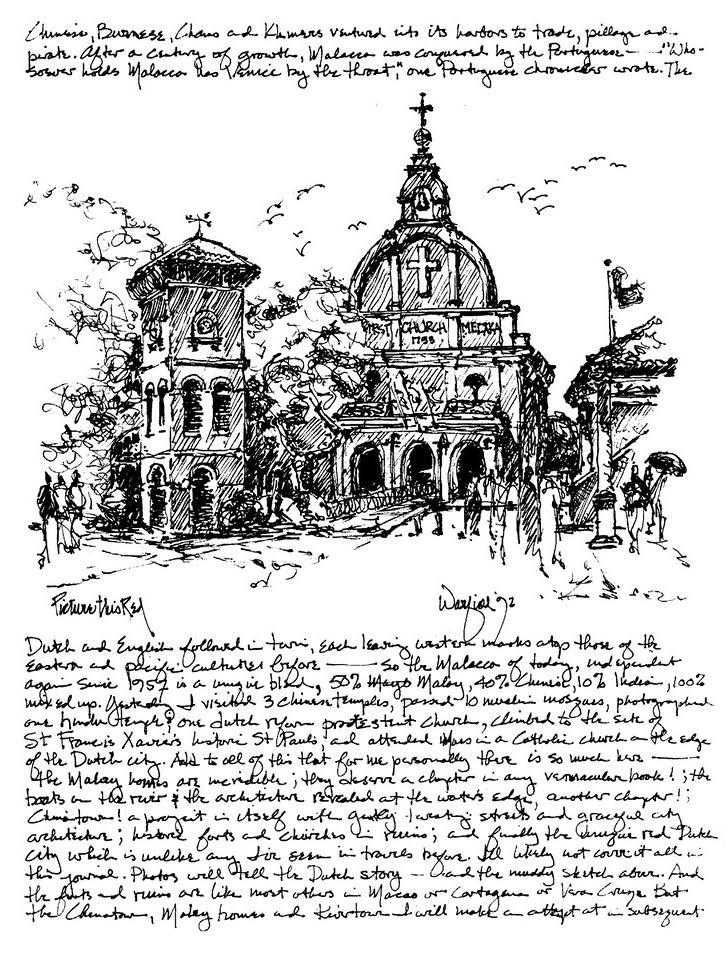 Chinese, Burmese, Chams and Khmers ventured into its harbors to trade, pillage and
pirate. After a century of growth, Malacca was conquered by the Portuguese — "Who-
soever holds Malacca has Venice by the throat," one Portuguese chronicler wrote. The
FIRST CHURCH MELAKA
1753
Picture this Red
Warfield '92
Dutch and English followed in turn, each leaving western marks atop those of the
eastern and pacific cultures before — So the Malacca of today, independent
again since 1957 is a unique blend, 50% Malay, 40% Chinese, 10% Indian, 100%
mixed up. Yesterday I visited 3 Chinese temples, passed 10 muslim mosques, photographed
one hindu temple & one dutch reform protestent church, climbed to the site of
St Francis Xavier's historic St Pauls, and attended Mass in a Catholic church on the edge
of the Dutch city. And to all of this that for me personally there is so much here —
the Malay homes are incredible; they deserve a chapter in any vernacular book!; the
boats on the river & the architecture revealed at the water's edge, another chapter!;
Chinatown! a project in itself with gently twisting streets and graceful city
architecture; historic forts and churches in ruins; and finally the unique red Dutch
city which is unlike any I've seen in travels before. I'll likely not cover it all in
this journal. Photos will tell the Dutch story — and the muddy sketch above. And
the forts and ruins are like most others in Macao or Cartagena or Vera Cruz. But
the Chinatown, Malay homes and Rivertown I will make an attempt at in subsequent